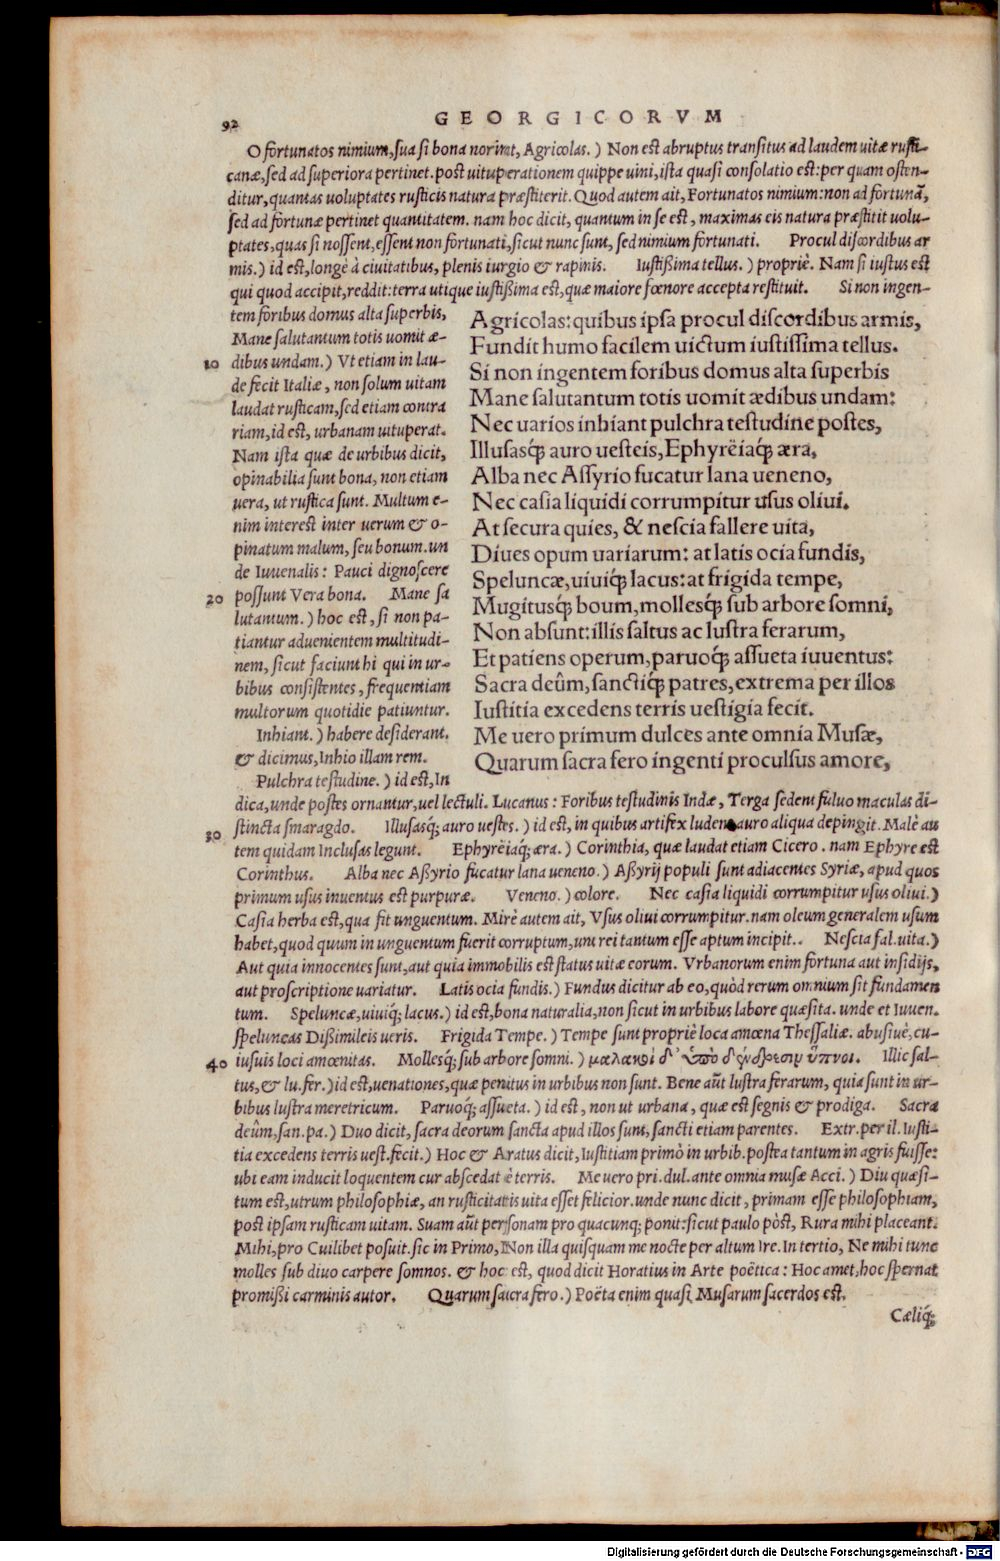 92
GEORGICORVM
O fortunatos nimium, sua si bona norint, Agricolas.) Non est abruptus transitus ad laudem uitæ rusti-
canæ, sed ad superiora pertinet. post uituperationem quippe uini, ista quasi consolatio est: per quam osten-
ditur, quantas uoluptates rusticis natura præstiterit. Quod autem ait, Fortunatos nimium: non ad fortunā,
sed ad fortunæ pertinet quantitatem. nam hoc dicit, quantum in se est, maximas eis natura præstitit uolu-
ptates, quas si nossent, essent non fortunati, sicut nunc sunt, sed nimium fortunati. Procul discordibus ar
mis.) id est, longè à ciuitatibus, plenis iurgio & rapinis. Iustißima tellus.) propriè. Nam si iustus est
qui quod accipit, reddit: terra utique iustißima est, quæ maiore fœnore accepta restituit. Si non ingen-
tem foribus domus alta superbis,
Mane salutantum totis uomit æ-
10 dibus undam.) Vt etiam in lau-
de fecit Italiæ, non solum uitam
laudat rusticam, sed etiam contra
riam, id est, urbanam uituperat.
Nam ista quæ de urbibus dicit,
opinabilia sunt bona, non etiam
uera, ut rustica sunt. Multum e-
nim interest inter uerum & o-
pinatum malum, seu bonum. un
de Iuuenalis: Pauci dignoscere
20 possunt Vera bona. Mane sa
lutantum.) hoc est, si non pa-
tiantur aduenientem multitudi-
nem, sicut faciunt hi qui in ur-
bibus consistentes, frequentiam
multorum quotidie patiuntur.
Inhiant.) habere desiderant.
& dicimus, Inhio illam rem.
Pulchra testudine.) id est, In
Agricolas: quibus ipsa procul discordibus armis,
Fundit humo facilem uictum iustissima tellus.
Si non ingentem foribus domus alta superbis
Mane salutantum totis uomit ædibus undam:
Nec uarios inhiant pulchra testudine postes,
Illusasq́ auro uesteis, Ephyrëiaq́ æra,
Alba nec Assyrio fucatur lana ueneno,
Nec casia liquidi corrumpitur usus oliui.
At secura quies, & nescia fallere uita,
Diues opum uariarum: at latis ocia fundis,
Speluncæ, uiuiq́ lacus: at frigida tempe,
Mugitusq́ boum, mollesq́ sub arbore somni,
Non absunt: illis saltus ac lustra ferarum,
Et patiens operum, paruoq́ assueta iuuentus:
Sacra deûm, sanctiq́ patres, extrema per illos
Iustitia excedens terris uestigia fecit.
Me uero primum dulces ante omnia Musæ,
Quarum sacra fero ingenti proculsus amore,
dica, unde postes ornantur, uel lectuli. Lucanus: Foribus testudinis Indæ, Terga sedent fuluo maculas di-
30 stincta smaragdo. Illusasq́; auro uestes.) id est, in quibus artifex ludens auro aliqua depingit. Malè au
tem quidam Inclusas legunt. Ephyrëiaq́; æra.) Corinthia, quæ laudat etiam Cicero. nam Ephyre est
Corinthus. Alba nec Aßyrio fucatur lana ueneno.) Aßyrij populi sunt adiacentes Syriæ, apud quos
primum usus inuentus est purpuræ. Veneno.) colore. Nec casia liquidi corrumpitur usus oliui.)
Casia herba est, qua fit unguentum. Mirè autem ait, Vsus oliui corrumpitur. nam oleum generalem usum
habet, quod quum in unguentum fuerit corruptum, uni rei tantum esse aptum incipit.. Nescia fal. uita.)
Aut quia innocentes sunt, aut quia immobilis est status uitæ eorum. Vrbanorum enim fortuna aut insidijs,
aut proscriptione uariatur. Latis ocia fundis.) Fundus dicitur ab eo, quòd rerum omnium sit fundamen
tum. Speluncæ, uiuiq́; lacus.) id est, bona naturalia, non sicut in urbibus labore quæsita. unde et Iuuen.
speluncas Dißimileis ueris. Frigida Tempe.) Tempe sunt propriè loca amœna Thessaliæ. abusiuè, cu-
40 iusuis loci amœnitas. Mollesq́; sub arbore somni.) μαλακοὶ δ' ὑπὸ δένδρεσιν ὕπνοι. Illic sal-
tus, & lu. fer.) id est, uenationes, quæ penitus in urbibus non sunt. Bene aūt lustra ferarum, quia sunt in ur-
bibus lustra meretricum. Paruoq́; assueta.) id est, non ut urbana, quæ est segnis & prodiga. Sacra
deûm, san. pa.) Duo dicit, sacra deorum sancta apud illos sunt, sancti etiam parentes. Extr. per il. Iusti-
tia excedens terris uest. fecit.) Hoc & Aratus dicit, Iustitiam primò in urbib. postea tantum in agris fuisse:
ubi eam inducit loquentem cur abscedat è terris. Me uero pri. dul. ante omnia musæ Acci.) Diu quæsi-
tum est, utrum philosophiæ, an rusticitatis uita esset felicior. unde nunc dicit, primam esse philosophiam,
post ipsam rusticam uitam. Suam aūt personam pro quacunq; ponit: sicut paulo pòst, Rura mihi placeant.
Mihi, pro Cuilibet posuit. sic in Primo, Non illa quisquam me nocte per altum Ire. In tertio, Ne mihi tunc
molles sub diuo carpere somnos. & hoc est, quod dicit Horatius in Arte poëtica: Hoc amet, hoc spernat
promißi carminis autor. Quarum sacra fero.) Poëta enim quasi Musarum sacerdos est.
Cæliq́;
Digitalisierung gefördert durch die Deutsche Forschungsgemeinschaft - DFG